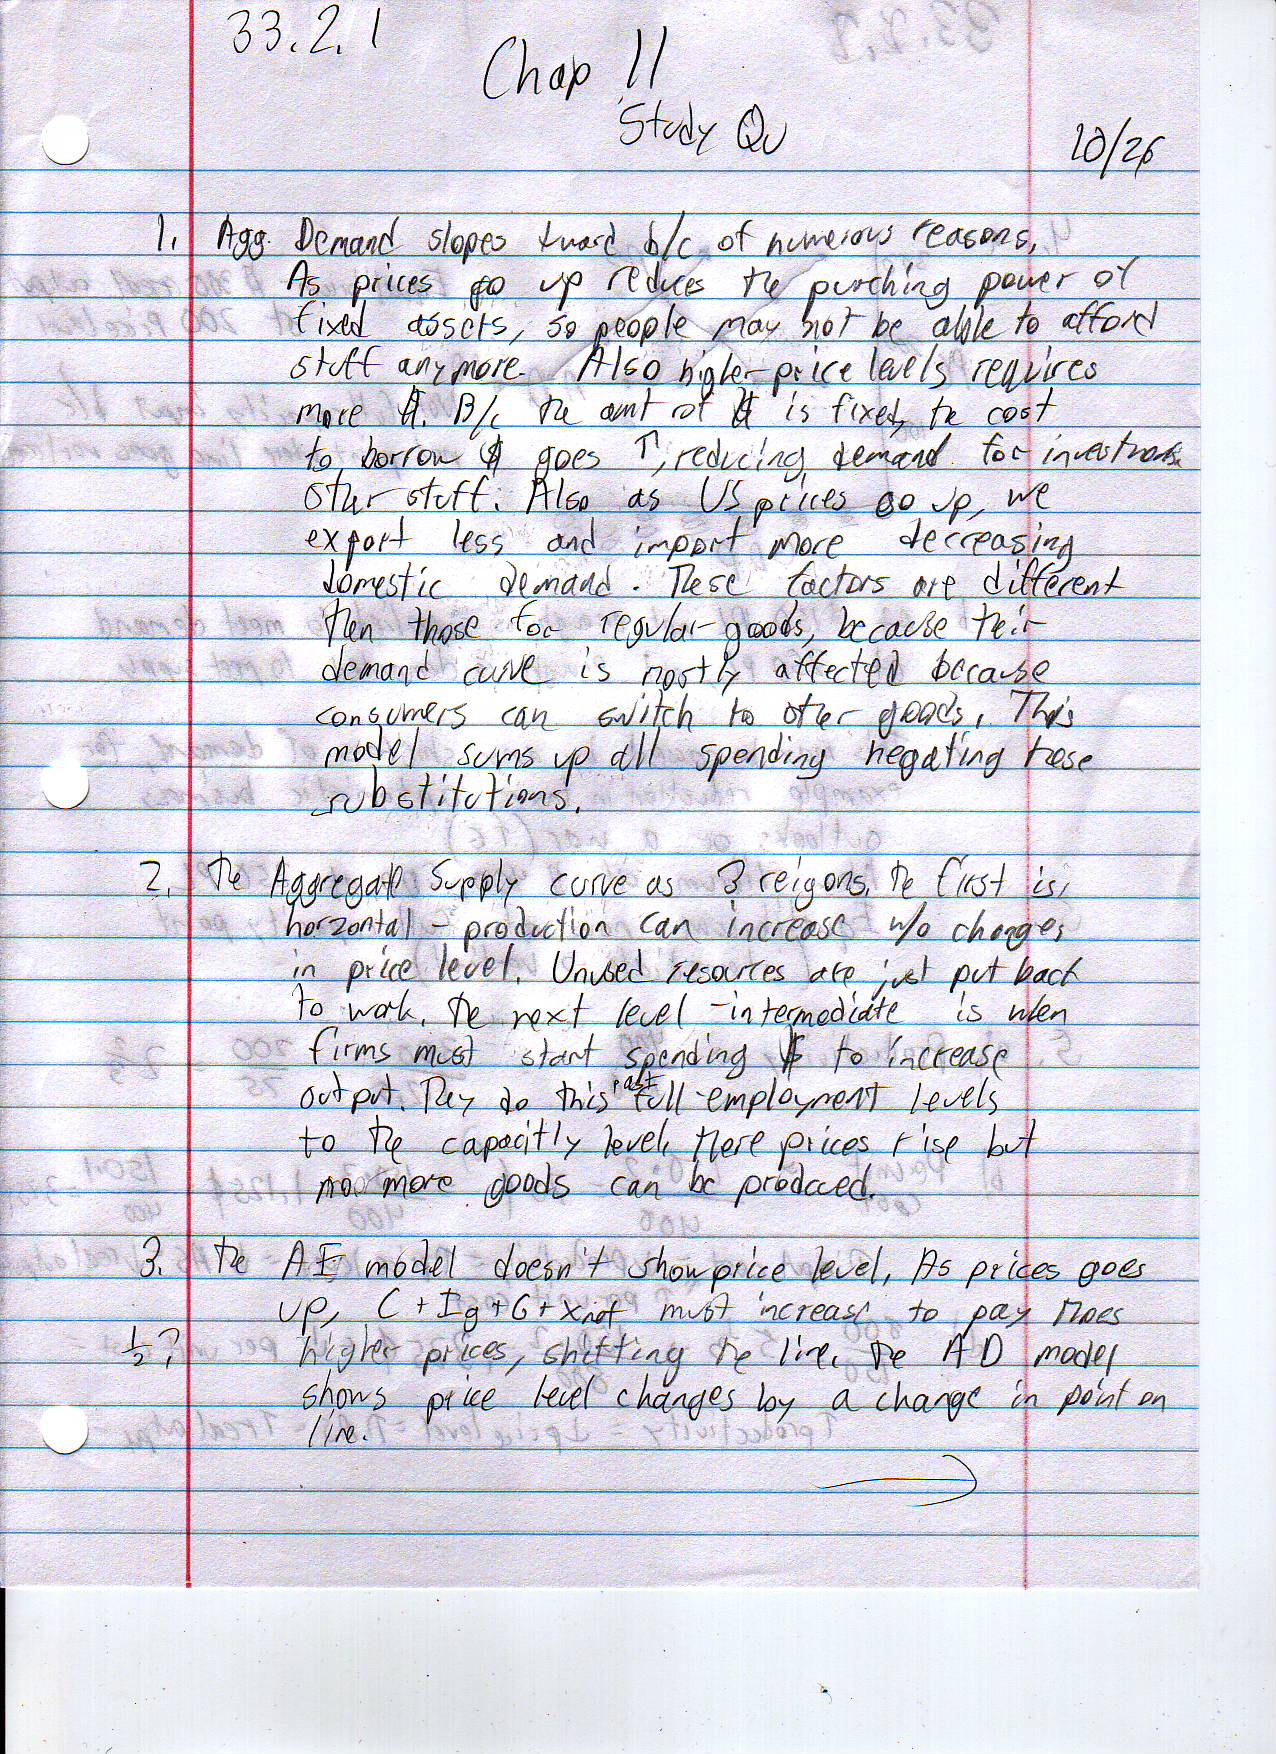 33.2.1
Chap 11
Study Qu
10/26
1. Agg. Demand slopes dward b/c of numerous reasons,
As prices go up reduces the purching power of
fixed assets, so people may not be able to afford
stuff anymore. Also higher price levels requires
more $. B/c the amt of $ is fixed, the cost
to borrow $ goes ↑, reducing demand for
other stuff. Also as US prices go up, we
export less and import more decreasing
domestic demand. These factors are different
then those for regular goods, because their
demand curve is mostly affected because
consumers can switch to other goods. This
model sums up all spending negating these
substitutions.
2. The Aggregate Supply curve as 3 reigons. The first is
horizontal - production can increase w/o changes
in price level. Unused resources are just put back
to work. The next level - intermediate is when
firms must start spending $ to increase
output. They do this past full-employment levels
to the capacitly level. Here prices rise but
no more goods can be produced.
3. The AE model doesn't show price level. As prices goes
up, C + Ig + G + Xnet must increase to pay thoes
½? higher prices, shifting the line. The AD model
shows price level changes by a change in point on
line.